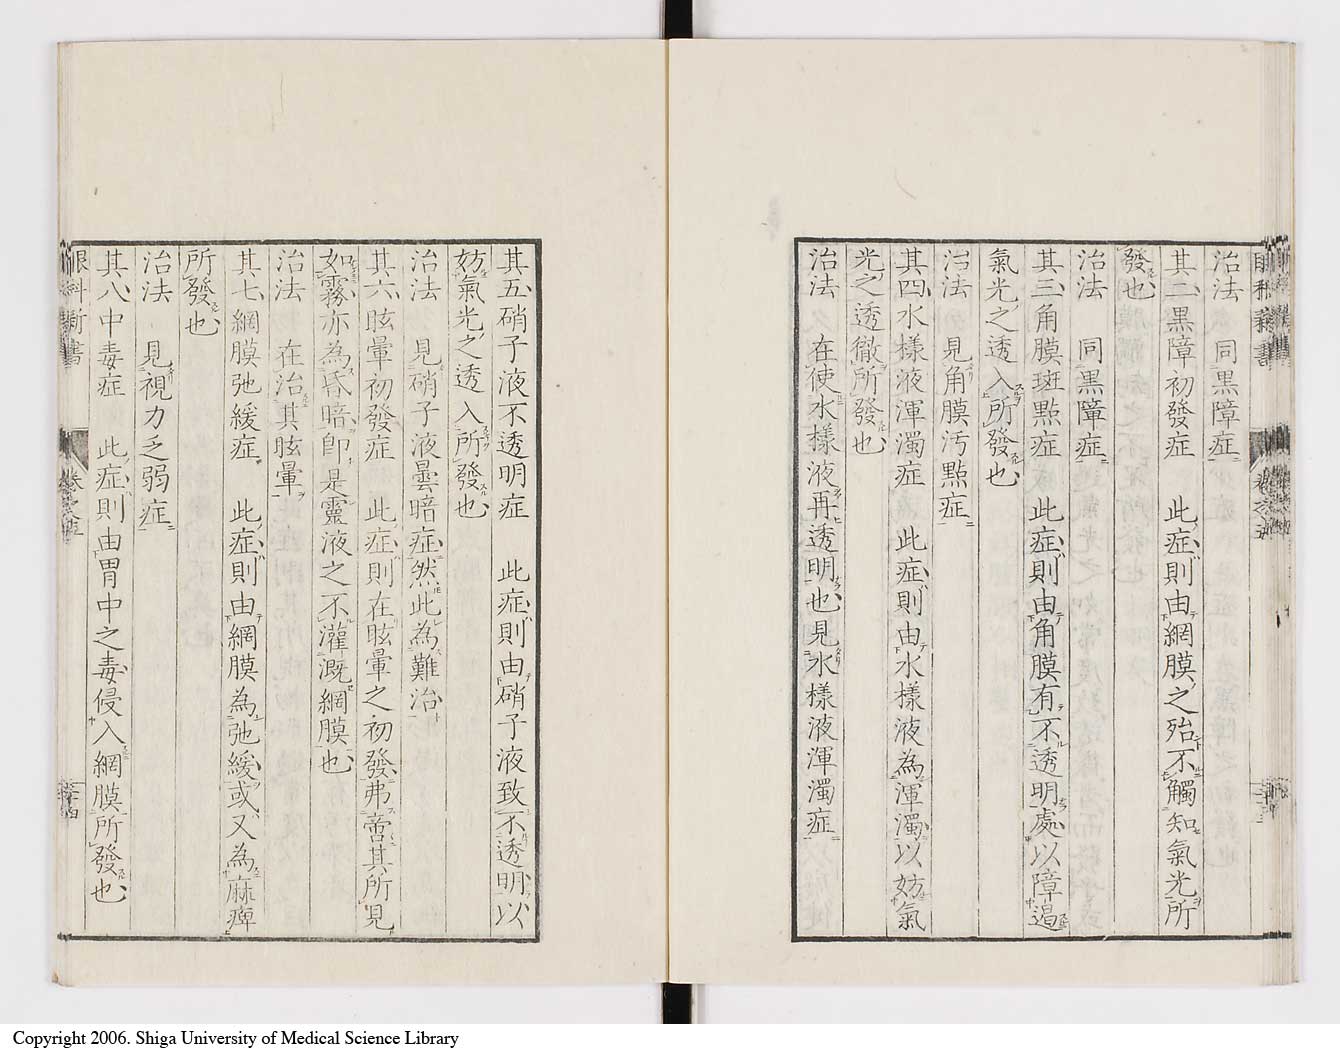 治法 同黒障症
其二黒障初發症 此症則由網膜之殆不觸知氣光所
發也
治法 同黒障症
其三角膜斑點症 此症則由角膜有不透明處以障遏
氣光之透入所發也
治法 見角膜汚點症
其四水樣液渾濁症 此症則由水樣液為渾濁以妨氣
光之透徹所發也
治法 在使水樣液再透明也見水樣液渾濁症
其五硝子液不透明症 此症則由硝子液致不透明以
妨氣光之透入所發也
治法 見硝子液曇暗症然此為難治
其六眩暈初發症 此症則在眩暈之初發弗啻其所見
如霧亦為昏暗即是靈液之不灌溉網膜也
治法 在治其眩暈
其七網膜弛緩症 此症則由網膜為弛緩或又為麻痺
所發也
治法 見視力乏弱症
其八中毒症 此症則由胃中之毒侵入網膜所發也
眼科新書
Copyright 2006. Shiga University of Medical Science Library